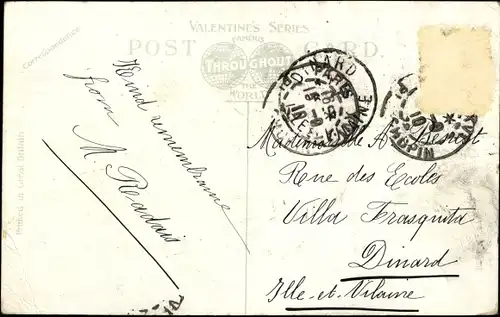 VALENTINE'S SERIES
FAMOUS
POST CARD
THROUGHOUT
THE
WORLD
Correspondence
Printed in Great Britain
Kind remembrance
from
M.
DINARD
ILLE-ET-VILAINE
CHOPIN
Mademoiselle A.
Rue des Ecoles
Villa Frasquita
Dinard
Ille-et-Vilaine